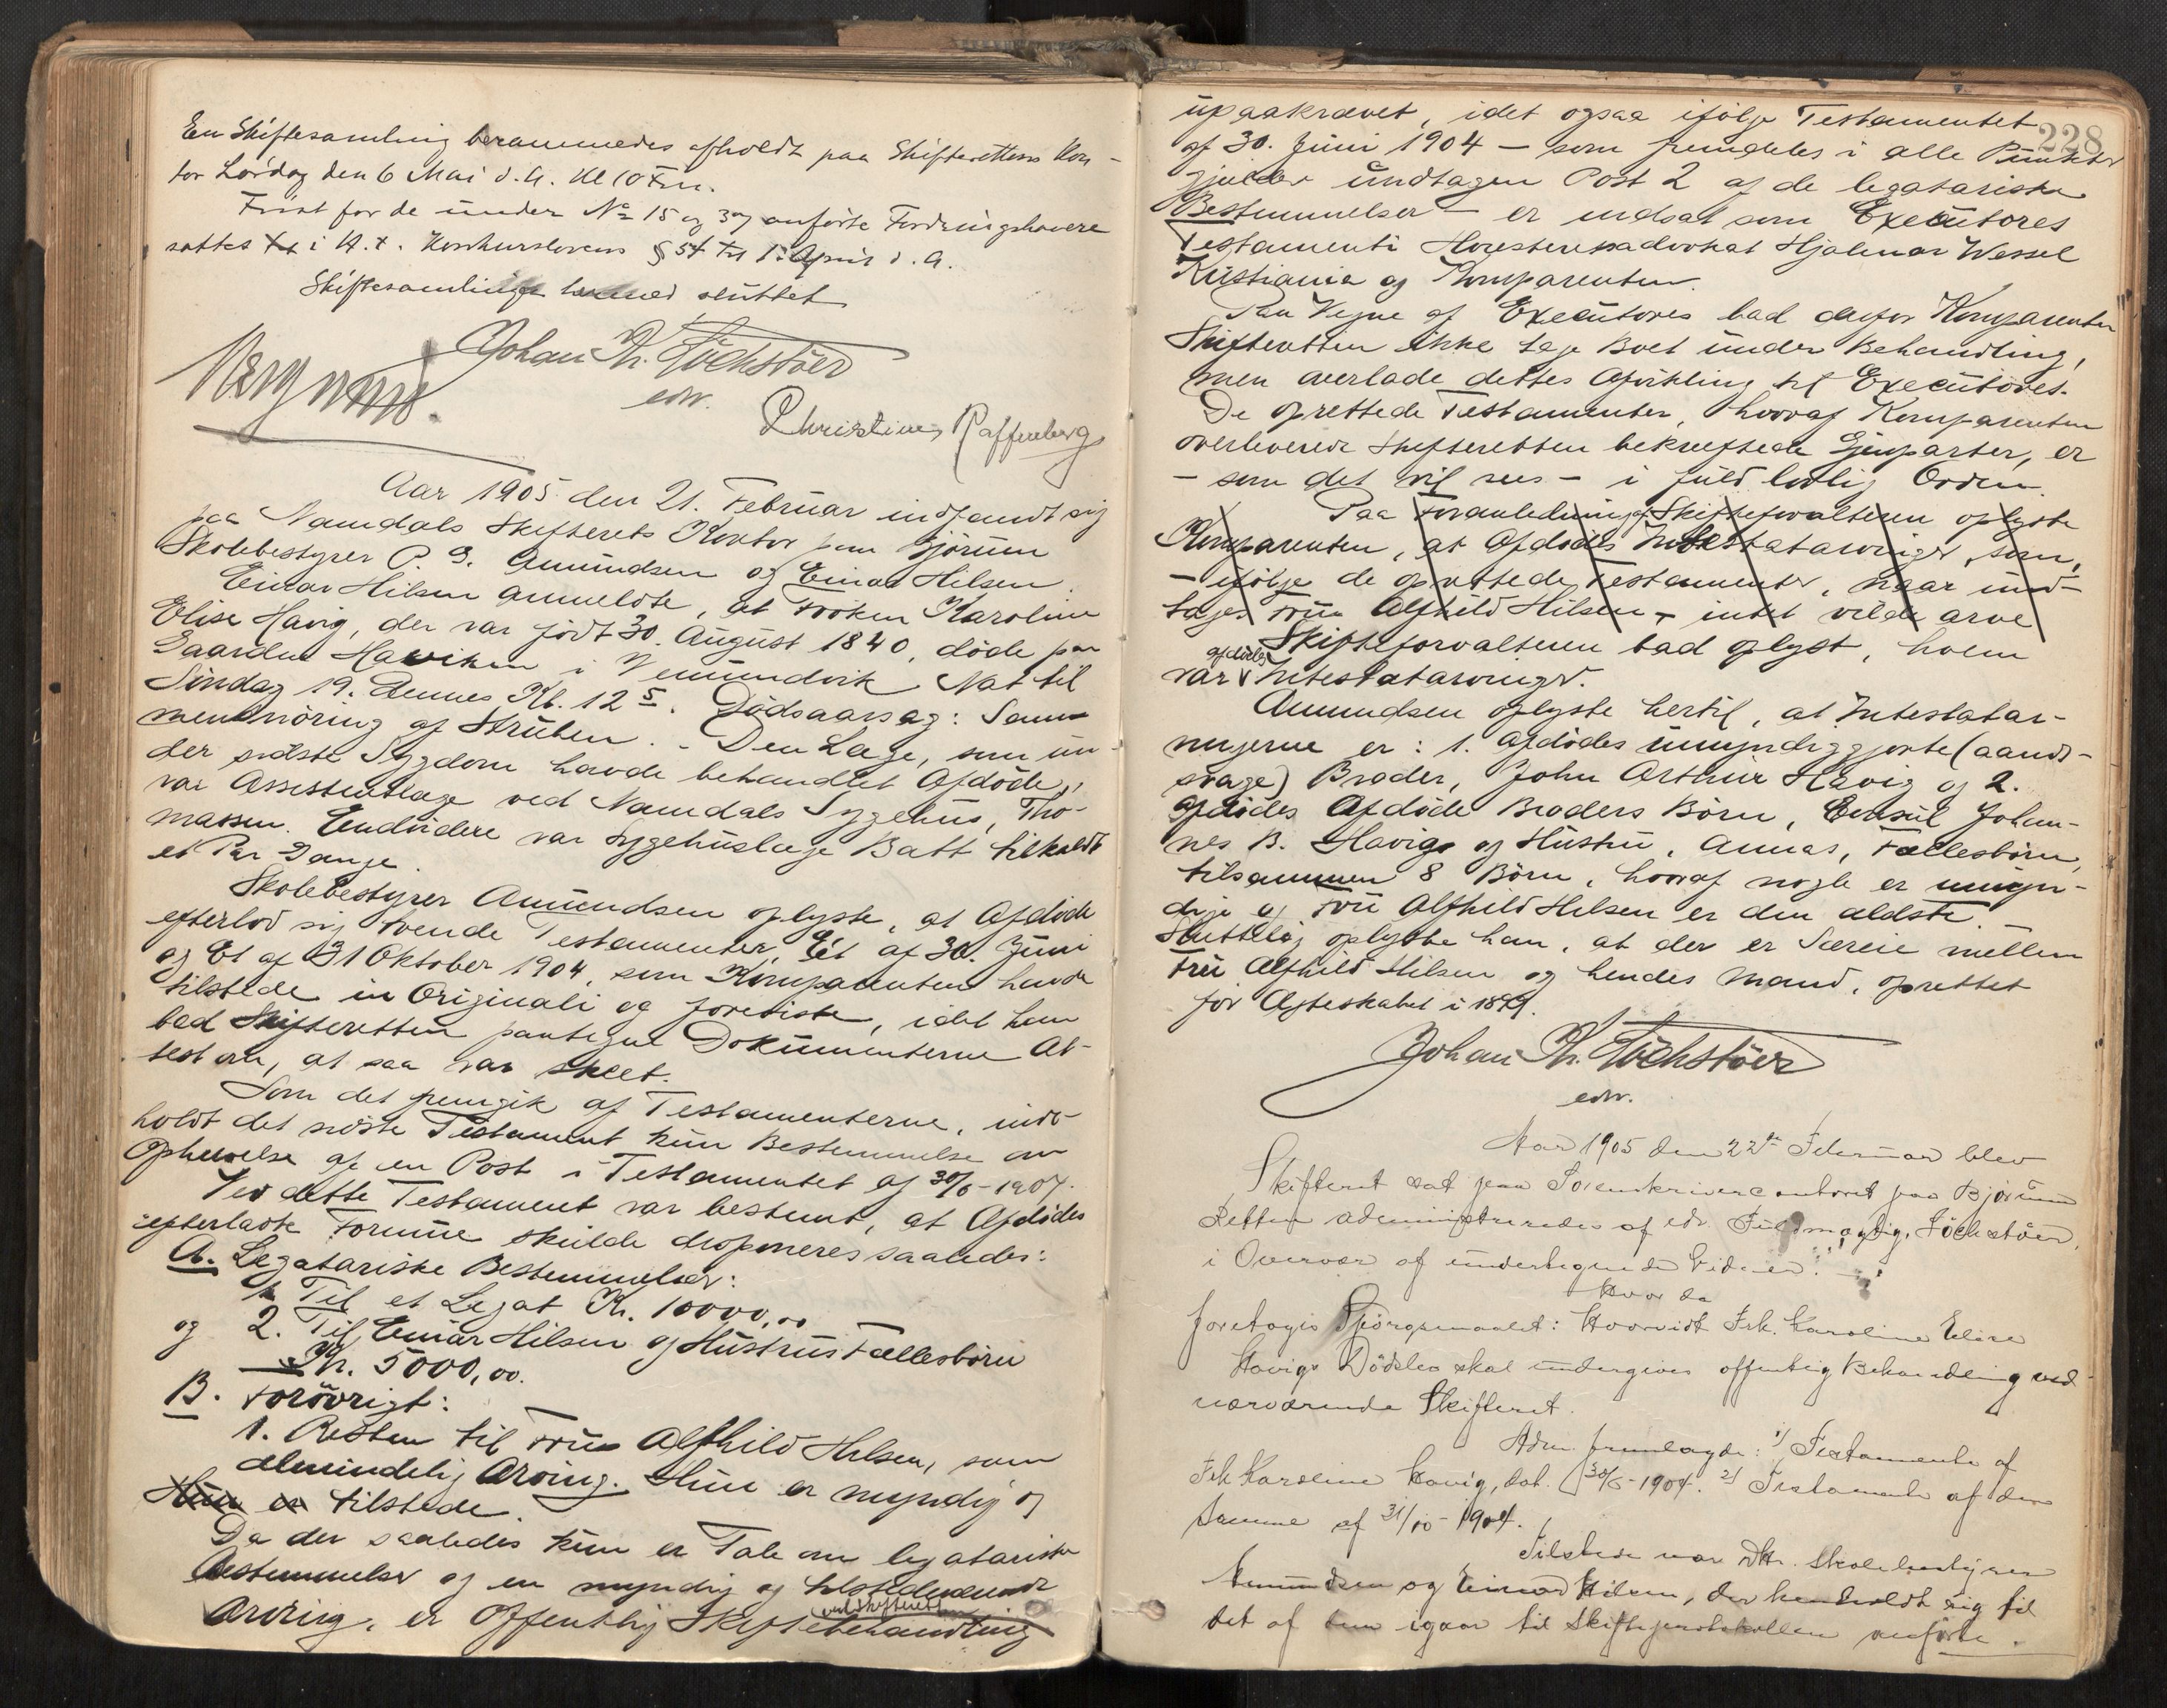 En Skiftesamling berammedes afholdt paa Skifterettens Kon-
tor Lørdag den 6 Mai d.A. Kl 10 Fm.
Frist for de under No 15 og 37 anførte Fordringshavere
sattes i H.t. Konkurslovens § 54 til 1. April d.A.
Skiftesamlingen hermed sluttet
Johan Th. Löchstöer
edv.
Christines Raffenberg
Aar 1905 den 21. Februar indfandt sig
paa Namdals Skifterets Kontor paa Bjørum
Skolebestyrer P. S. Amundsen og Einar Hilsen.
Einar Hilsen anmeldte, at Frøken Karoline
Elise Havig, der var født 30. August 1840, døde paa
Gaarden Haviken i Vemundvik Nat til
Søndag 19. dennes Kl. 12 5. Dødsaarsag: Sam-
mensnöring af Struben. - Den Læge, som un-
der sidste Sygdom havde behandlet Afdøde,
var Assistentlæge ved Namdals Sygehus, Tho-
massen. Endvidere var Sygehuslæge Batt tilkaldt
et Par Gange.
Skolebestyrer Amundsen oplyste, at Afdøde
efterlod sig tvende Testamenter, Et af 30. Juni
og Et af 31 Oktober 1904, som Komparenten havde
tilstede in Originali og foreviste, idet han
bad Skifteretten paategne Dokumenterne At-
test om, at saa var skeet.
Som det fremgik af Testamenterne, inde-
holdt det sidste Testament kun Bestemmelse om
Ophævelse af en Post i Testamentet af 30/6-1904.
Ved dette Testament var bestemt, at Afdødes
efterladte Formue skulde disponeres saaledes:
A. Legatariske Bestemmelser:
1. Til et Legat Kr. 10000,00
og 2. Til Einar Hilsen og Hustrus Fællesbørn
Kr. 5000,00.
B. Forøvrigt:
1. Resten til Fru Alfhild Hilsen, som
almindelig Arving. Hun er myndig og
Hun er tilstede.
Da der saaledes kun er Tale om legatariske
Bestemmelser og en myndig og tilstedeværende
ved Skifteretten
Arving, er Offentlig Skiftebehandling
228
upaakrævet, idet ogsaa ifølge Testamentet
af 30. Juni 1904 – som fremdeles i alle Punkter
gjælder undtagen Post 2 af de legatariske
Bestemmelser – er indsat som Executores
Testamenti Høiesteretsadvokat Hjalmar Wessel
Kristiania og Komparenten.
Paa Vegne af Executores bad derfor Komparenten
Skifteretten ikke tage Boet under Behandling,
men overlade dettes Afvikling til Executores.
De oprettede Testamenter, hvoraf Komparenten
overleverede Skifteretten bekræftede Gjenparter, er
– som det vil sees – i fuld lovlig Orden.
Paa Foranledning af Skifteforvalteren oplyste
Komparenten, at Afdødes Intestatarvinger, som,
– ifølge de oprettede Testamenter, naar und-
tages Fru Alfhild Hilsen – intet vilde arve
Skifteforvalteren bad oplyst, hvem
afdødes
var Intestatarvinger.
Amundsen oplyste hertil, at Intestatar-
vingerne er: 1. Afdødes umyndiggjorte (aands-
svage) Broder, John Arthur Havig og 2.
Afdødes Afdøde Broders Børn, Consul Johan-
nes B. Havigs og Hustru, Annas, Fællesbørn,
tilsammen 8 Børn, hvoraf nogle er umyn-
dige og Fru Alfhild Hilsen er den ældste
Sluttelig oplyste han, at der er Særeie mellem
Fru Alfhild Hilsen og hendes Mand, oprettet
før Ægteskabet i 1899.
Johan Th. Löchstöer
edv.
Aar 1905 den 22de Februar blev
Skifteret sat paa Sorenskriverkontoret paa Bjørum
Retten administreredes af edv. Fuldmægtig, Löchstöer,
i Overvær af undertegnede Vidner.
Hvor da
foretoges Spörgsmaalet: Hvorvidt Frk. Karoline Elise
Havigs Dödsbo skal undergives offentlig Behandling ved
nærværende Skifteret.
Adm. fremlagde: 1) Testamente af
Frk Karoline Havig, dat. 30/6-1904. 2) Testamente af den
samme af 31/10-1904.
Tilstede var Hr. Skolebestyrer
Amundsen og Einar Hilsen, der henholdt sig til
det af dem igaar til Skifteprotokollen anførte.